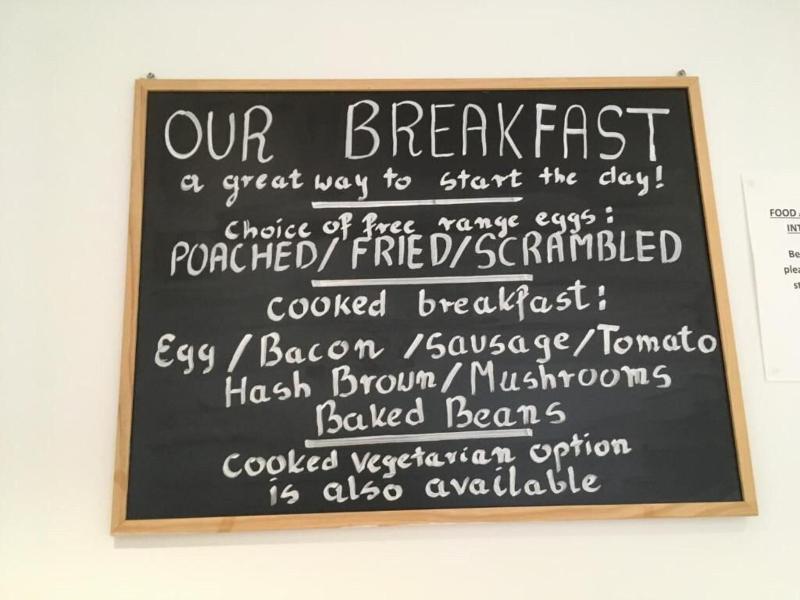 OUR BREAKFAST
a great way to start the day!
choice of free range eggs:
POACHED/FRIED/SCRAMBLED
cooked breakfast:
Egg/Bacon/Sausage/Tomato
Hash Brown/Mushrooms
Baked Beans
Cooked Vegetarian option
is also available
FOOD